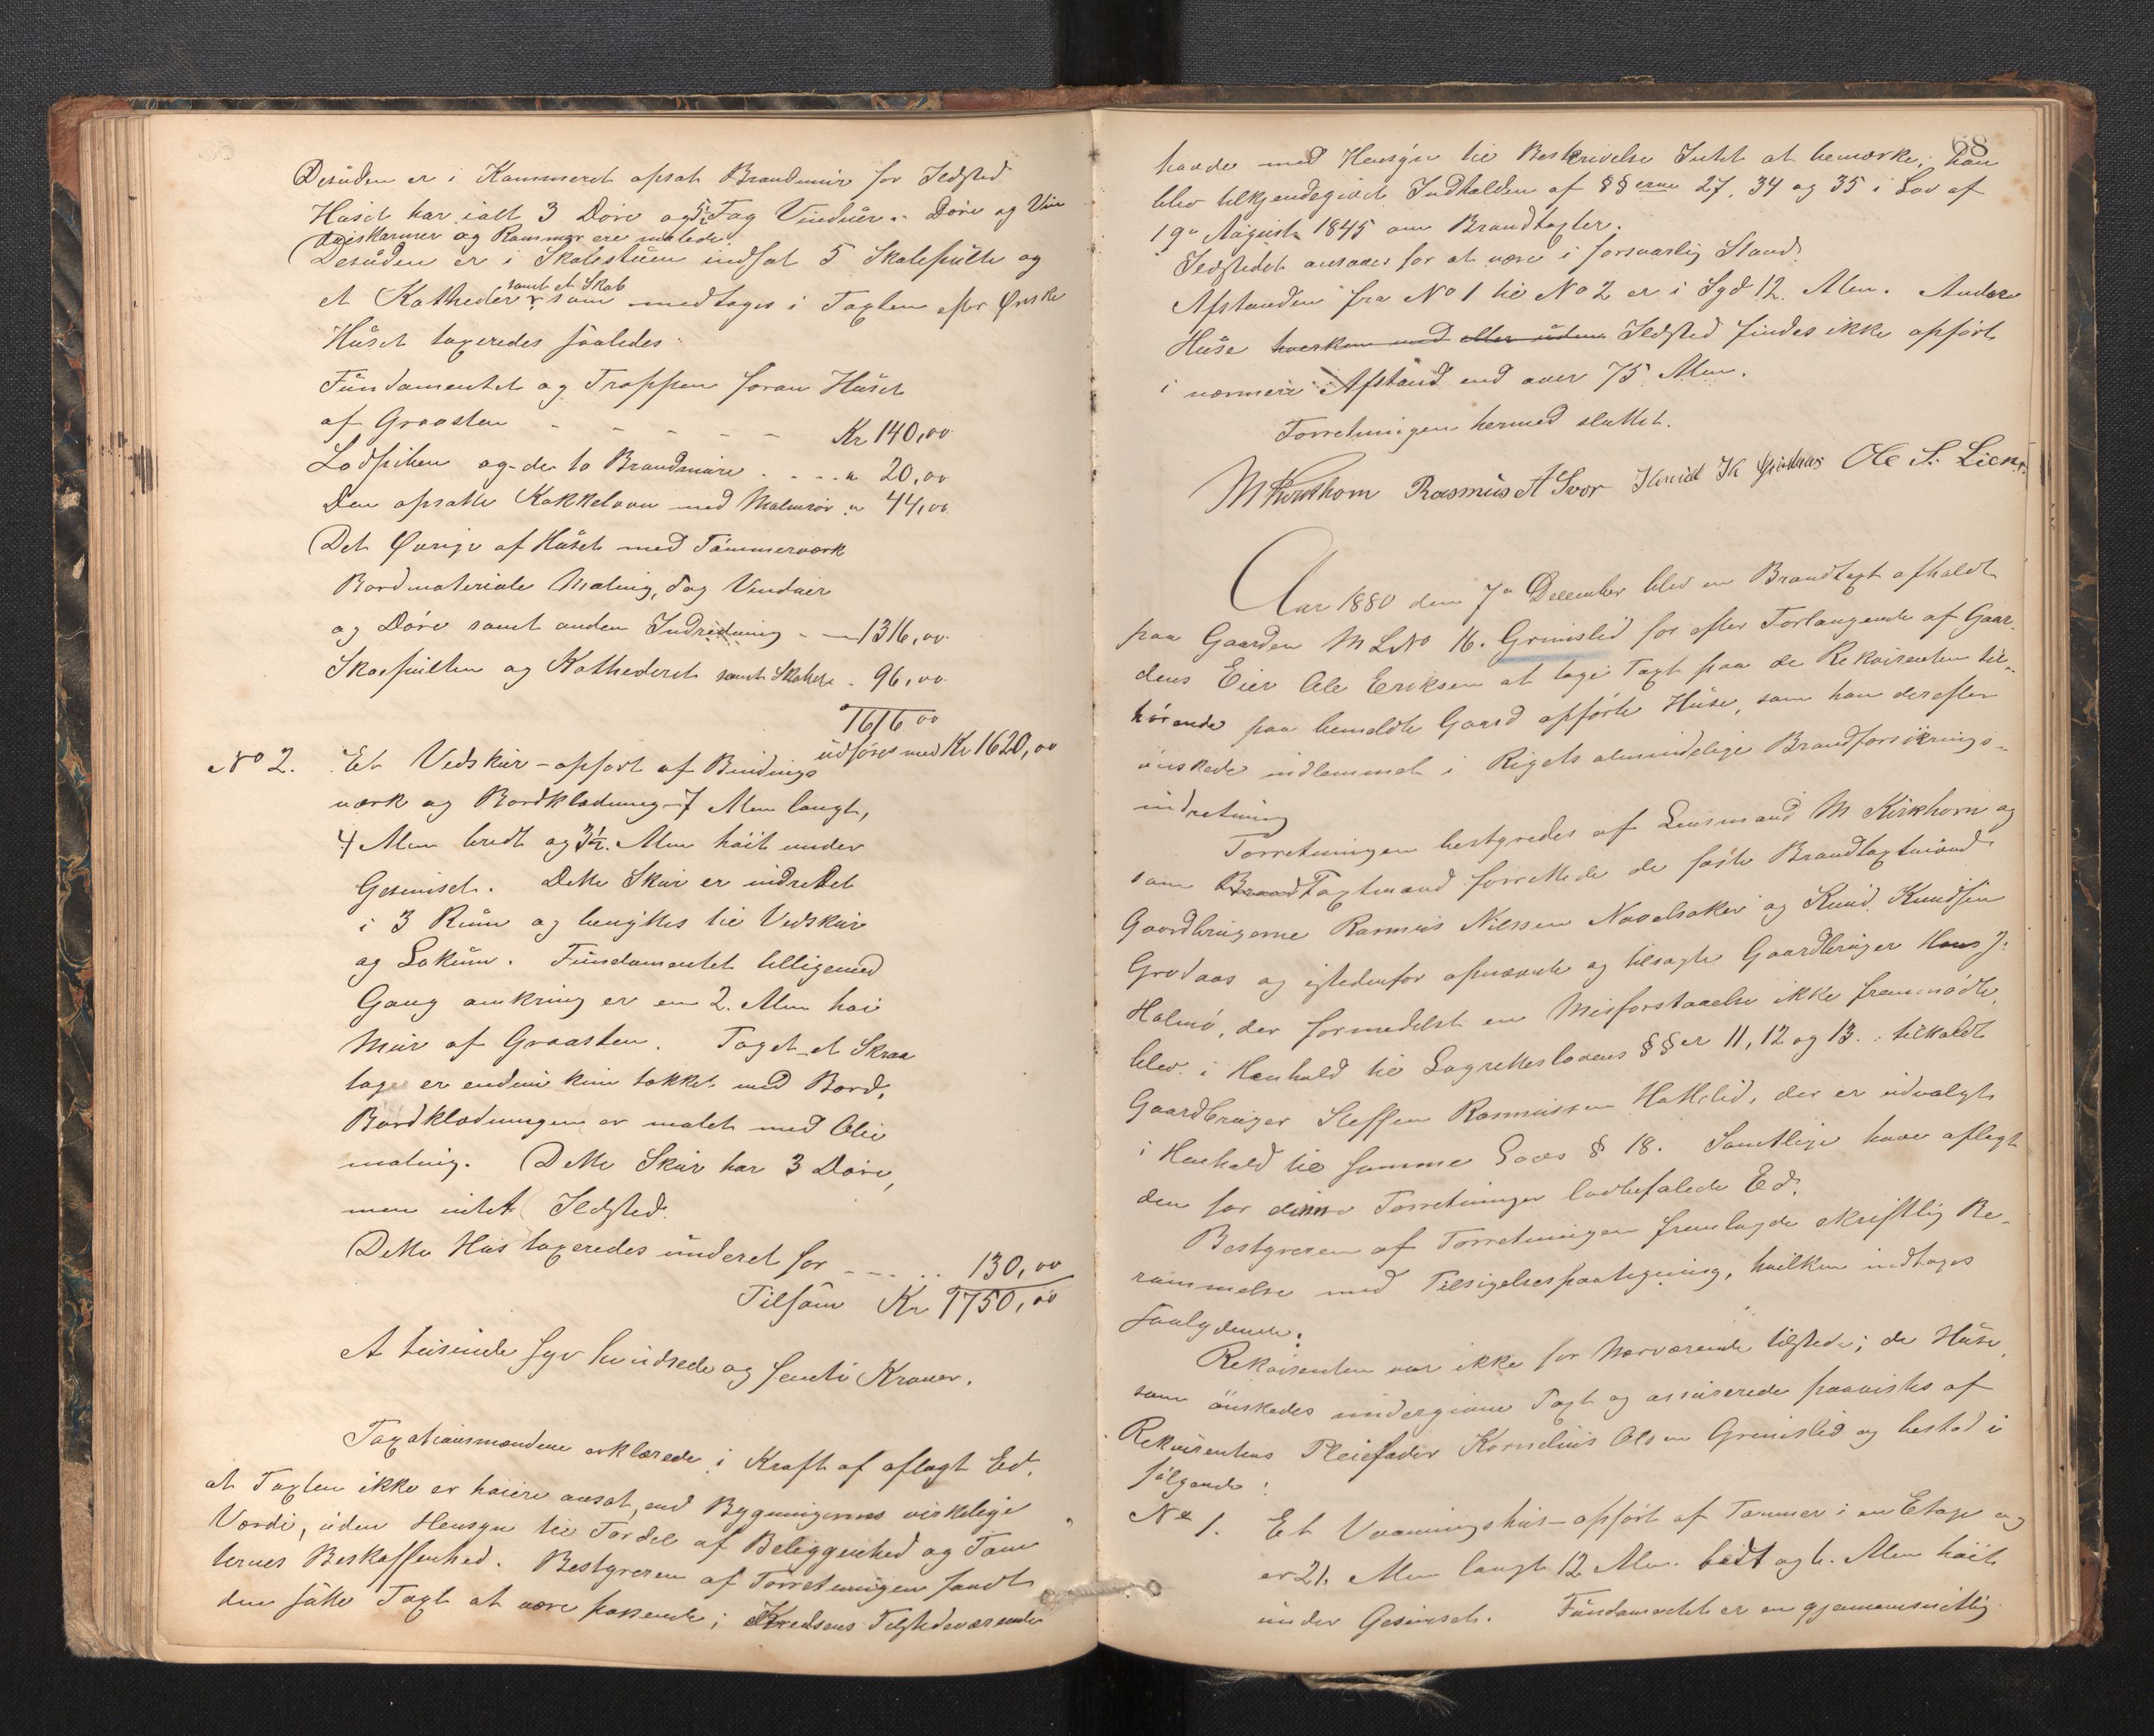 Desuden er i Kammeret opsat Brandmur for Ildsted
Huset har ialt 3 Döre og 5½ Fag Vinduer. Döre og Vin
dueskarmer og Rammer ere malede.
Desuden er i Skolestuen indsat 5 Skolepulte og
et Katheder samt et Skab som medtages i Taxten efter Ønske
Huset taxeredes saaledes:
Fundamentet og Trappen foran Huset
af Graasten - - - - - - Kr 140,00
Lodpiben og de to Brandmure . - . . " 20,00
Den opsatte Kakkelovn med Malmrör " 44,00
Det Øvrige af Huset med Tömmerværk
Bordmateriale Maling, Tag Vinduer
og Döre samt anden Indredning - — 1316,00
Skolepulten og Kathederet samt Skabet - 96,00
1616 00
udföres med Kr 1620,00
No 2. Et Vedskur - opfört af Bindings
værk og Bordklædning - 7 Alen langt,
4 Alen bredt og 3½ Alen höit under
Gesimset. Dette Skur er indredet
i 3 Rum og benyttes til Vedskur
og Lokum. Fundamentet tilligemed
Gang omkring er en 2. Alen höi
Mur af Graasten. Taget et Skraa
tag er endnu kun tækket med Bord.
Bordklædningen er malet med Olie
maling. Dette Skur har 3 Döre,
men intet Ildsted.
Dette Hus taxeredes underet for - — . . 130,00
Tilsam Kr 1750,00
Et tusinde syv hundrede og femti Kroner.
Taxationsmændene erklærede i Kraft af aflagt Ed,
at Taxten ikke er höiere ansat, end Bygningernes virkelige
Værdi, uden Hensyn til Fordel af Beliggenhed og Tom
ternes Beskaffenhed. Bestyreren af Forretningen fandt
den satte Taxt at være passende; Kredsens Tilstedeværende
68
havde med Hensyn til Beskrivelse Intet at bemærke; han
blev tilkjendegivet Indholden af §§erne 27, 34 og 35 i Lov af
19de August 1845 om Brandtaxter.
Ildstedet ansaaes for at være i forsvarlig Stand.
Afstanden fra No 1 til No 2 er i Syd 12. Alen. Andre
Huse hverken med eller uden Ildsted findes ikke opfört
i nærmere Afstand end over 75 Alen.
Forretningen hermed sluttet.
M Kirkhorn Rasmus A Svor Knud K Grodaas Ole S. Lien
Aar 1880 den 7de December blev en Brandtaxt afholdt
paa Gaarden M L No 16. Grimslid for efter Forlangende af Gaar-
dens Eier Ole Eriksen at tage Taxt paa de Rekvirenten til-
hörende paa bemeldte Gaard opförte Huse, som han derefter
önskede indlemmet i Rigets almindelige Brandforsikrings-
indretning
Forretningen bestyredes af Lensmand M Kirkhorn og
som Brand Taxtmænd forrettede de faste Brandtaxtmænd
Gaardbrugerne Rasmus Nilssen Navelsaker og Knud Knudsen
Grodaas og istedenfor opnævnte og tilsagte Gaardbruger Hans J.
Holmö, der formedelst en Misforstaaelse ikke fremmödte,
blev i Henhold til Lagretteslovens §§er 11, 12 og 13 . tilkaldt
Gaardbruger Steffen Rasmussen Hattlid, der er udvalgt
i Henhold til samme Lovs § 18. Samtlige have aflagt
den for denne Forretninger lovbefalede Ed.
Bestyreren af Forretningen fremlagde skriftlig Be-
rammelse med Tilsigelsespaategning, hvilken indtages
saalydende:
Rekvirenten var ikke for Nærværende tilstede; de Huse,
som önskedes undergivne Taxt og assurerede paavistes af
Rekvirentens Pleiefader Kornelius Olsen Grimslid og bestod i
fölgende:
No 1. Et Vaaningshus - opfört af Tömmer i en Etage og
er 21. Alen langt 12 Alen. bredt og 6. Alen höit
under Gesimset. Fundamentet er en gjennemsnitlig